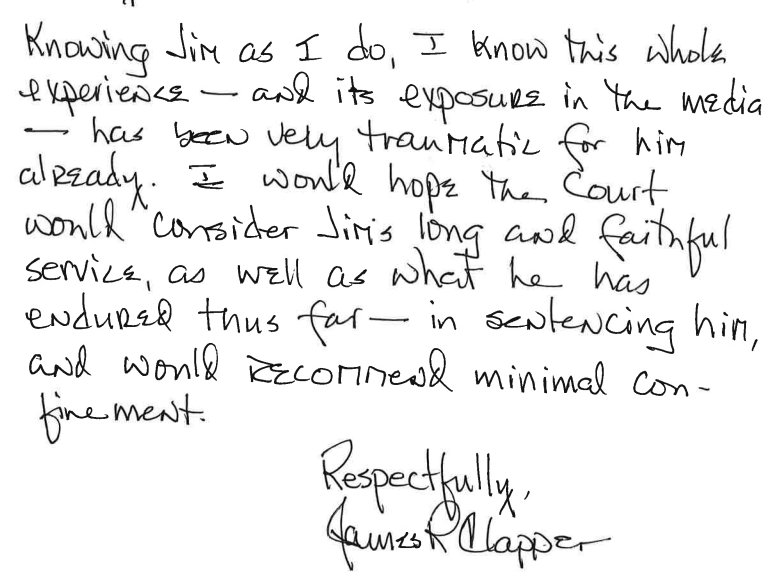 Knowing Jim as I do, I know this whole
experience — and its exposure in the media
— has been very traumatic for him
already. I would hope the Court
would consider Jim's long and faithful
service, as well as what he has
endured thus far — in sentencing him,
and would recommend minimal con-
finement.
Respectfully,
James R Clapper